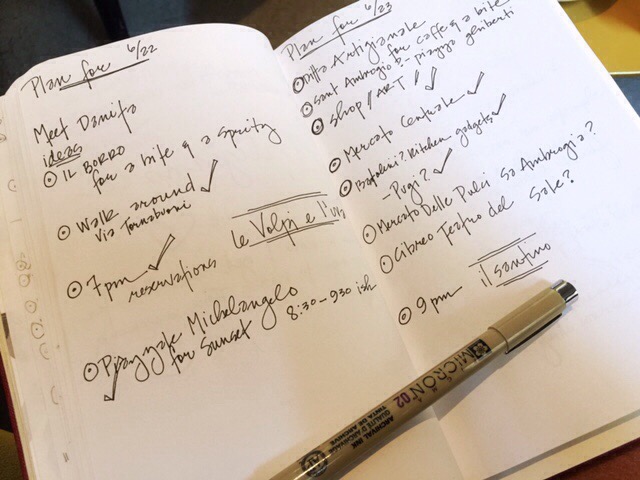 Plan for 6/22
Meet Danita
ideas
IL BORRO
for a bite & a spritz
Walk around ✓
Via Tornabuoni
7pm ✓
reservations
Le Volpi e l'uva
Piazzale Michelangelo
for sunset
8:30-930 ish
✓
Plan for 6/23
Ditta Artigianale
Sant Ambrogio for caffe & a bite
?- piazza ghiberti
Shop // ART! ✓
Mercato Centrale ✓
Bartolini? Kitchen gadgets ✓
- Pugi? ✓
Mercato Delle Pulci Sa Ambrogio?
Cibreo Teatro del Sale?
9pm il santino
MICRON 02
ARCHIVAL INK
QUALITÉ D'ARCHIVAGE
TINTA DE ARCHIVE